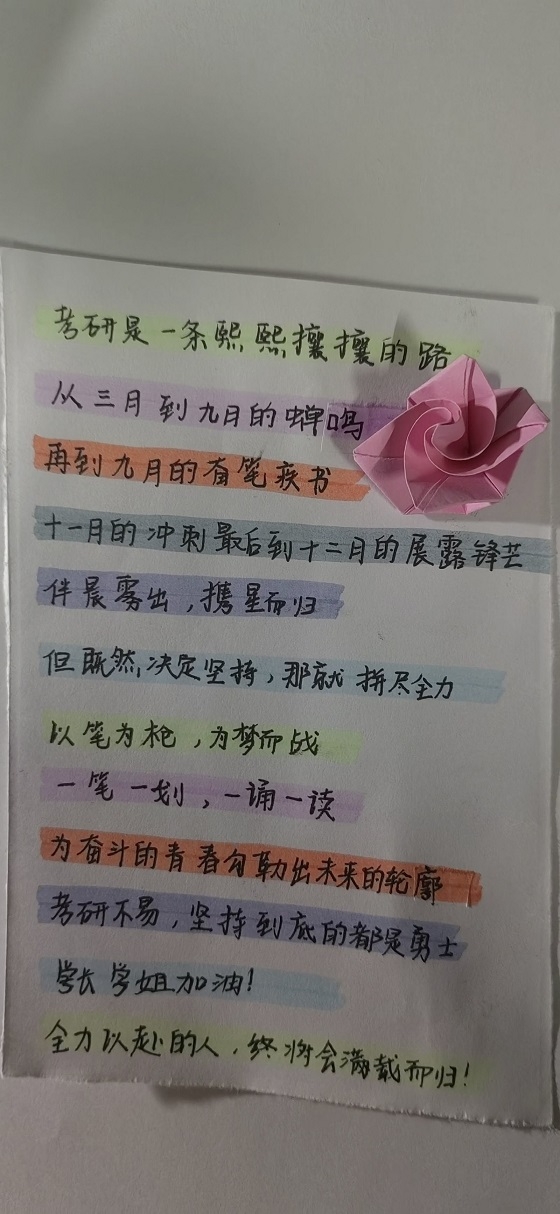 考研是一条熙熙攘攘的路
从三月到九月的蝉鸣
再到九月的奋笔疾书
十一月的冲刺最后到十二月的展露锋芒
伴晨雾出，携星而归
但既然决定坚持，那就拼尽全力
以笔为枪，为梦而战
一笔一划，一诵一读
为奋斗的青春勾勒出未来的轮廓
考研不易，坚持到底的都是勇士
学长学姐加油！
全力以赴的人，终将会满载而归！